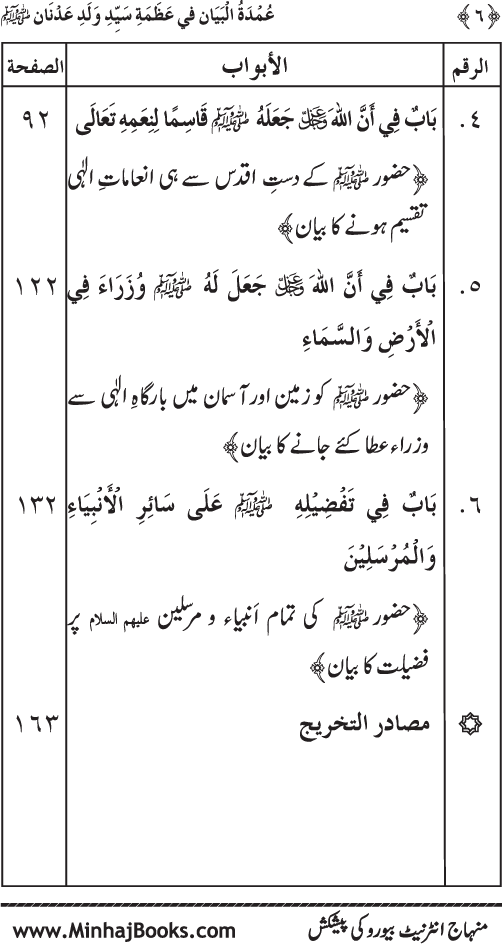 ﴿٦﴾ عُمْدَةُ الْبَيَان فِي عَظَمَةِ سَيِّدِ وَلَدِ عَدْنَان ﷺ
الرقم الأبواب الصفحة
٤. بَابٌ فِي أَنَّ اللهَ عزوجل جَعَلَهُ ﷺ قَاسِمًا لِنِعَمِهِ تَعَالَى ٩٢
﴿حضور ﷺ کے دستِ اقدس سے ہی انعاماتِ الٰہی
تقسیم ہونے کا بیان﴾
٥. بَابٌ فِي أَنَّ اللهَ عزوجل جَعَلَ لَهُ ﷺ وُزَرَاءَ فِي ١٢٢
الْأَرْضِ وَالسَّمَاءِ
﴿حضور ﷺ کو زمین اور آسمان میں بارگاہِ الٰہی سے
وزراء عطا کئے جانے کا بیان﴾
٦. بَابٌ فِي تَفْضِيْلِهِ ﷺ عَلَى سَائِرِ الْأَنْبِيَاءِ ١٣٢
وَالْمُرْسَلِيْنَ
﴿حضور ﷺ کی تمام اَنبیاء و مرسلین علیہم السلام پر
فضیلت کا بیان﴾
۞ مصادر التخريج ١٦٣
منہاج انٹرنیٹ بیورو کی پیشکش www.MinhajBooks.com